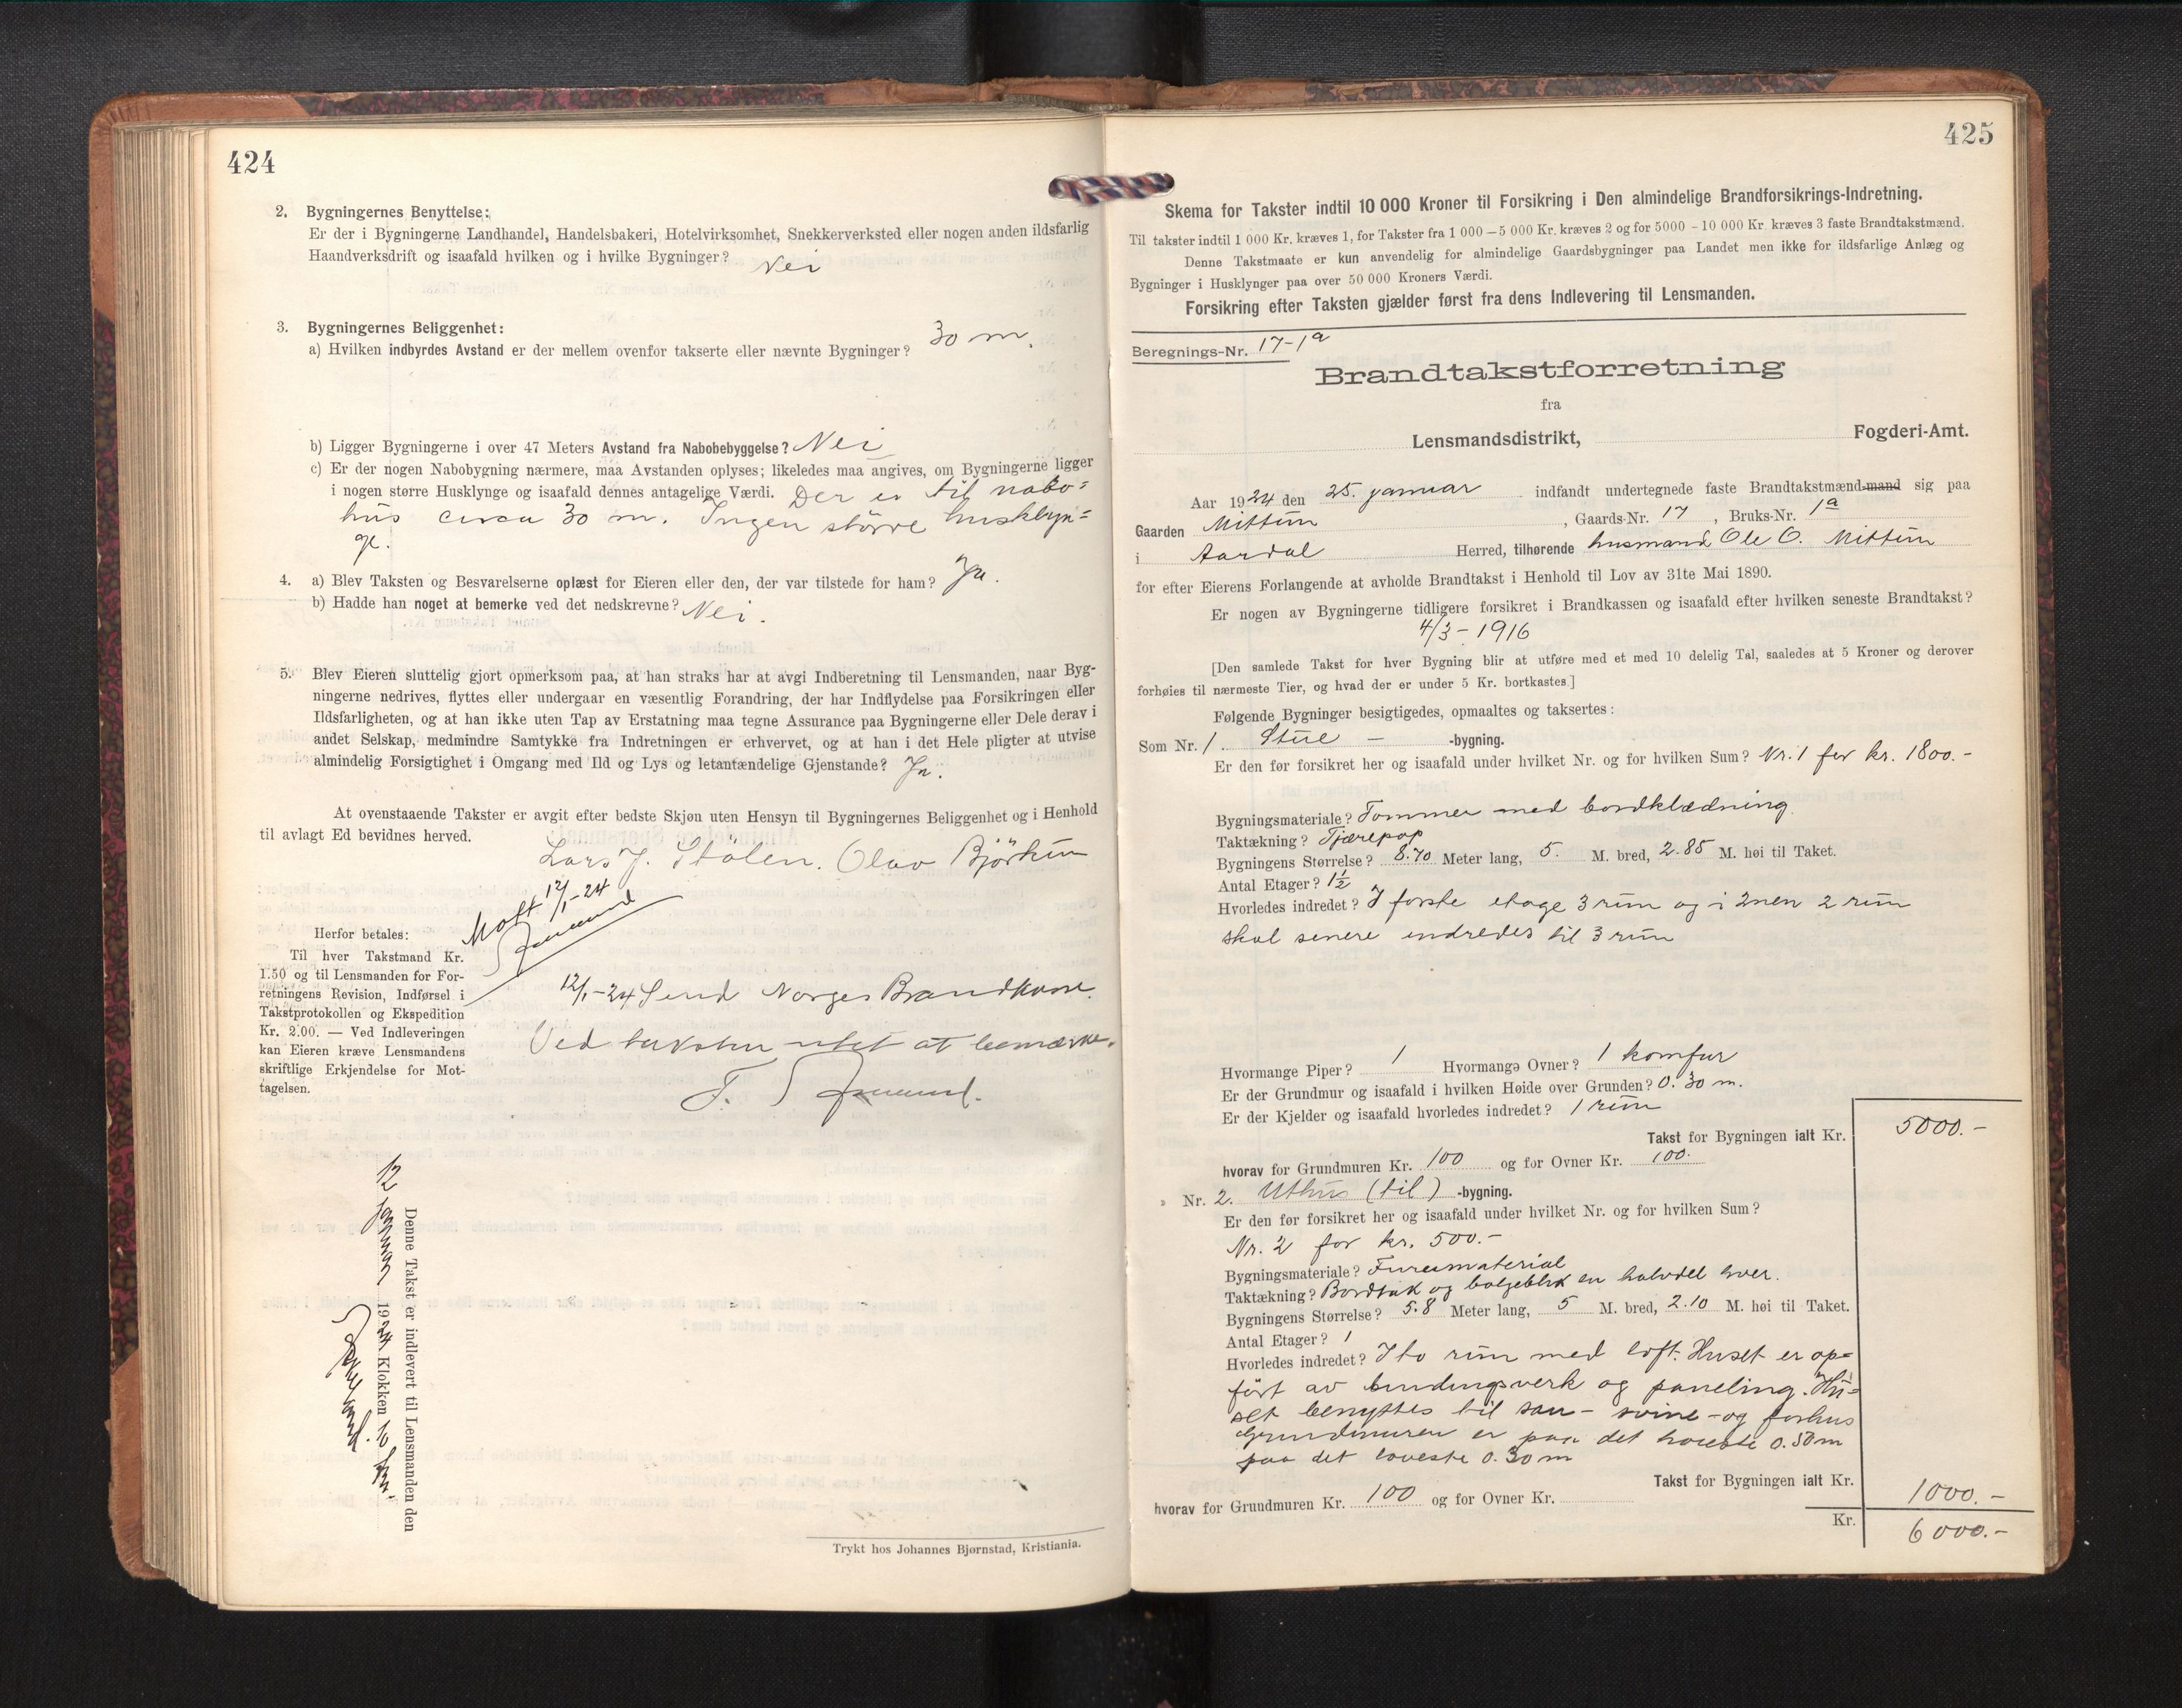 424
2. Bygningernes Benyttelse:
Er der i Bygningerne Landhandel, Handelsbakeri, Hotelvirksomhet, Snekkerverksted eller nogen anden ildsfarlig
Haandverksdrift og isaafald hvilken og i hvilke Bygninger? Nei
3. Bygningernes Beliggenhet:
a) Hvilken indbyrdes Avstand er der mellem ovenfor takserte eller nævnte Bygninger? 30 m.
b) Ligger Bygningerne i over 47 Meters Avstand fra Nabobebyggelse? Nei
c) Er der nogen Nabobygning nærmere, maa Avstanden oplyses; likeledes maa angives, om Bygningerne ligger
i nogen større Husklynge og isaafald dennes antagelige Værdi. Der er til nabo=
hus circa 30 m. Ingen större husklyn=
ge.
4. a) Blev Taksten og Besvarelserne oplæst for Eieren eller den, der var tilstede for ham? Ja.
b) Hadde han noget at bemerke ved det nedskrevne? Nei.
5. Blev Eieren sluttelig gjort opmerksom paa, at han straks har at avgi Indberetning til Lensmanden, naar Byg-
ningerne nedrives, flyttes eller undergaar en væsentlig Forandring, der har Indflydelse paa Forsikringen eller
Ildsfarligheten, og at han ikke uten Tap av Erstatning maa tegne Assurance paa Bygningerne eller Dele derav i
andet Selskap, medmindre Samtykke fra Indretningen er erhvervet, og at han i det Hele pligter at utvise
almindelig Forsigtighet i Omgang med Ild og Lys og letantændelige Gjenstande? Ja.
At ovenstaaende Takster er avgit efter bedste Skjøn uten Hensyn til Bygningernes Beliggenhet og i Henhold
til avlagt Ed bevidnes herved.
Lars J. Stölen. Olav Björkum
Mott 12/1-24
Herfor betales:
Til hver Takstmand Kr.
1.50 og til Lensmanden for For-
retningens Revision, Indførsel i
Takstprotokollen og Ekspedition
Kr. 2.00. — Ved Indleveringen
kan Eieren kræve Lensmandens
skriftlige Erkjendelse for Mot-
tagelsen.
12/1-24 Send Norges Brandkasse.
Ved taksten intet at bemærke.
Denne Takst er indlevert til Lensmanden den
12 januar 1924 Klokken 10 fm.
Trykt hos Johannes Bjørnstad, Kristiania.
425
Skema for Takster indtil 10 000 Kroner til Forsikring i Den almindelige Brandforsikrings-Indretning.
Til takster indtil 1 000 Kr. kræves 1, for Takster fra 1 000 — 5 000 Kr. kræves 2 og for 5000 - 10 000 Kr. kræves 3 faste Brandtakstmænd.
Denne Takstmaate er kun anvendelig for almindelige Gaardsbygninger paa Landet men ikke for ildsfarlige Anlæg og
Bygninger i Husklynger paa over 50 000 Kroners Værdi.
Forsikring efter Taksten gjælder først fra dens Indlevering til Lensmanden.
Beregnings-Nr. 17-1a
Brandtakstforretning
fra
Lensmandsdistrikt, Fogderi-Amt.
Aar 1924 den 25. januar indfandt undertegnede faste Brandtakstmænd-mand sig paa
Gaarden Mittun, Gaards-Nr. 17, Bruks-Nr. 1a
i Aardal Herred, tilhørende husmand Ole O. Mittun
for efter Eierens Forlangende at avholde Brandtakst i Henhold til Lov av 31te Mai 1890.
Er nogen av Bygningerne tidligere forsikret i Brandkassen og isaafald efter hvilken seneste Brandtakst?
4/3-1916
[Den samlede Takst for hver Bygning blir at utføre med et med 10 delelig Tal, saaledes at 5 Kroner og derover
forhøies til nærmeste Tier, og hvad der er under 5 Kr. bortkastes.]
Følgende Bygninger besigtigedes, opmaaltes og taksertes:
Som Nr. 1. Stue - -bygning.
Er den før forsikret her og isaafald under hvilket Nr. og for hvilken Sum? Nr. 1 for kr. 1800.-
Bygningsmateriale? Tømmer med bordklædning
Taktækning? Tjærepap
Bygningens Størrelse? 8.70 Meter lang, 5. M. bred, 2.85 M. høi til Taket.
Antal Etager? 1½
Hvorledes indredet? I forste etage 3 rum og i 2nen 2 rum
skal senere indredes til 3 rum
Hvormange Piper? 1 Hvormange Ovner? 1 komfur
Er der Grundmur og isaafald i hvilken Høide over Grunden? 0.30 m.
Er der Kjelder og isaafald hvorledes indredet? 1 rum
Takst for Bygningen ialt Kr. 5000.-
hvorav for Grundmuren Kr. 100 og for Ovner Kr. 100.
» Nr. 2. Uthus (til) -bygning.
Er den før forsikret her og isaafald under hvilket Nr. og for hvilken Sum?
Nr. 2 for kr. 500.-
Bygningsmateriale? Furumaterial
Taktækning? Bordtak og bølgeblik en halvdel hver.
Bygningens Størrelse? 5.8 Meter lang, 5 M. bred, 2.10 M. høi til Taket.
Antal Etager? 1
Hvorledes indredet? I to rum med loft. Huset er op=
fört av bindingsverk og paneling. Hu=
set benyttes til sau- svine- og forhus
Grundmuren er paa det høieste 0.50 m
paa det laveste 0.30 m
Takst for Bygningen ialt Kr. 1000.-
hvorav for Grundmuren Kr. 100 og for Ovner Kr.
Kr. 6000.-